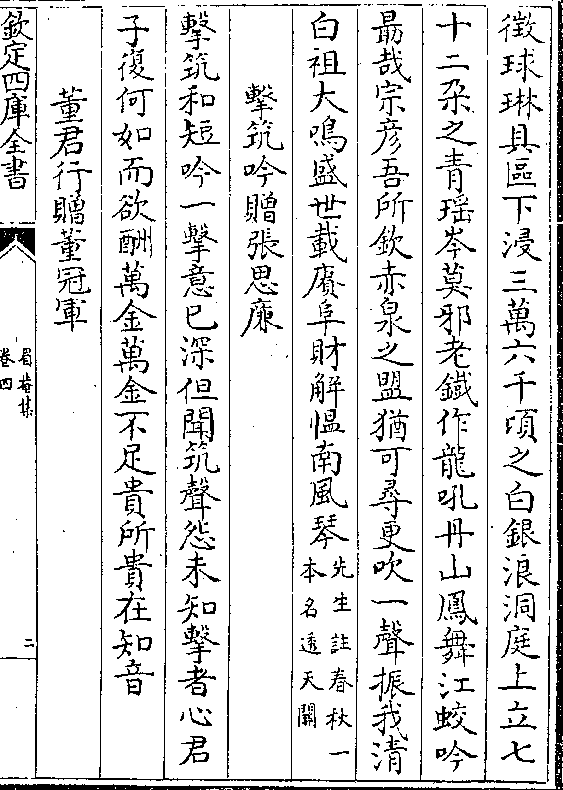 徴球琳具區下浸三萬六千頃之白銀浪洞庭上立七
十二朶之青瑶岑莫邪老鐡作龍吼丹山鳳舞江蛟吟
勗哉宗彦吾所欽赤泉之盟猶可尋更吹一聲振我清
白祖大鳴盛世載賡阜財解愠南風琴先生註春秋一
本名透天關
擊筑吟贈張思廉
擊筑和短吟一擊意已深但聞筑聲怨未知擊者心君
子復何如而欲酬萬金萬金不足貴所貴在知音
董君行贈董冠軍
欽定四庫全書
卷四
二